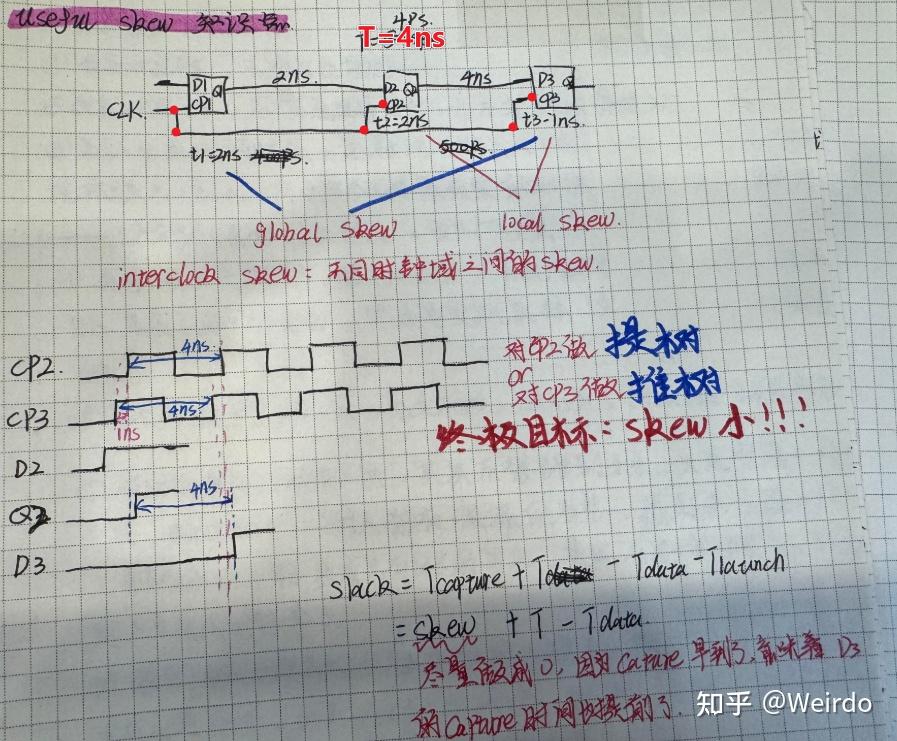 useful skew 知识点.
4ps.
T=4ns
D1 Q 2ns. D2 Q2 4ns. D3 Q
CLK. CP1 CP2 CP3
t2=2ns t3=1ns.
t1=2ns 500ps.
global skew local skew.
interclock skew: 不同时钟域之间的skew.
CP2. 4ns. 对CP2做 提相对
or
CP3 4ns. 对CP3做 推相对
1ns
终极目标: skew 小!!!
D2
4ns
Q2
D3
slack = Tcapture + T - Tdata - Tlaunch
= skew + T - Tdata.
尽量做成0, 因为 Cature 早到了, 意味着 D3
的 Capture 时间也提前了.
知乎 @Weirdo